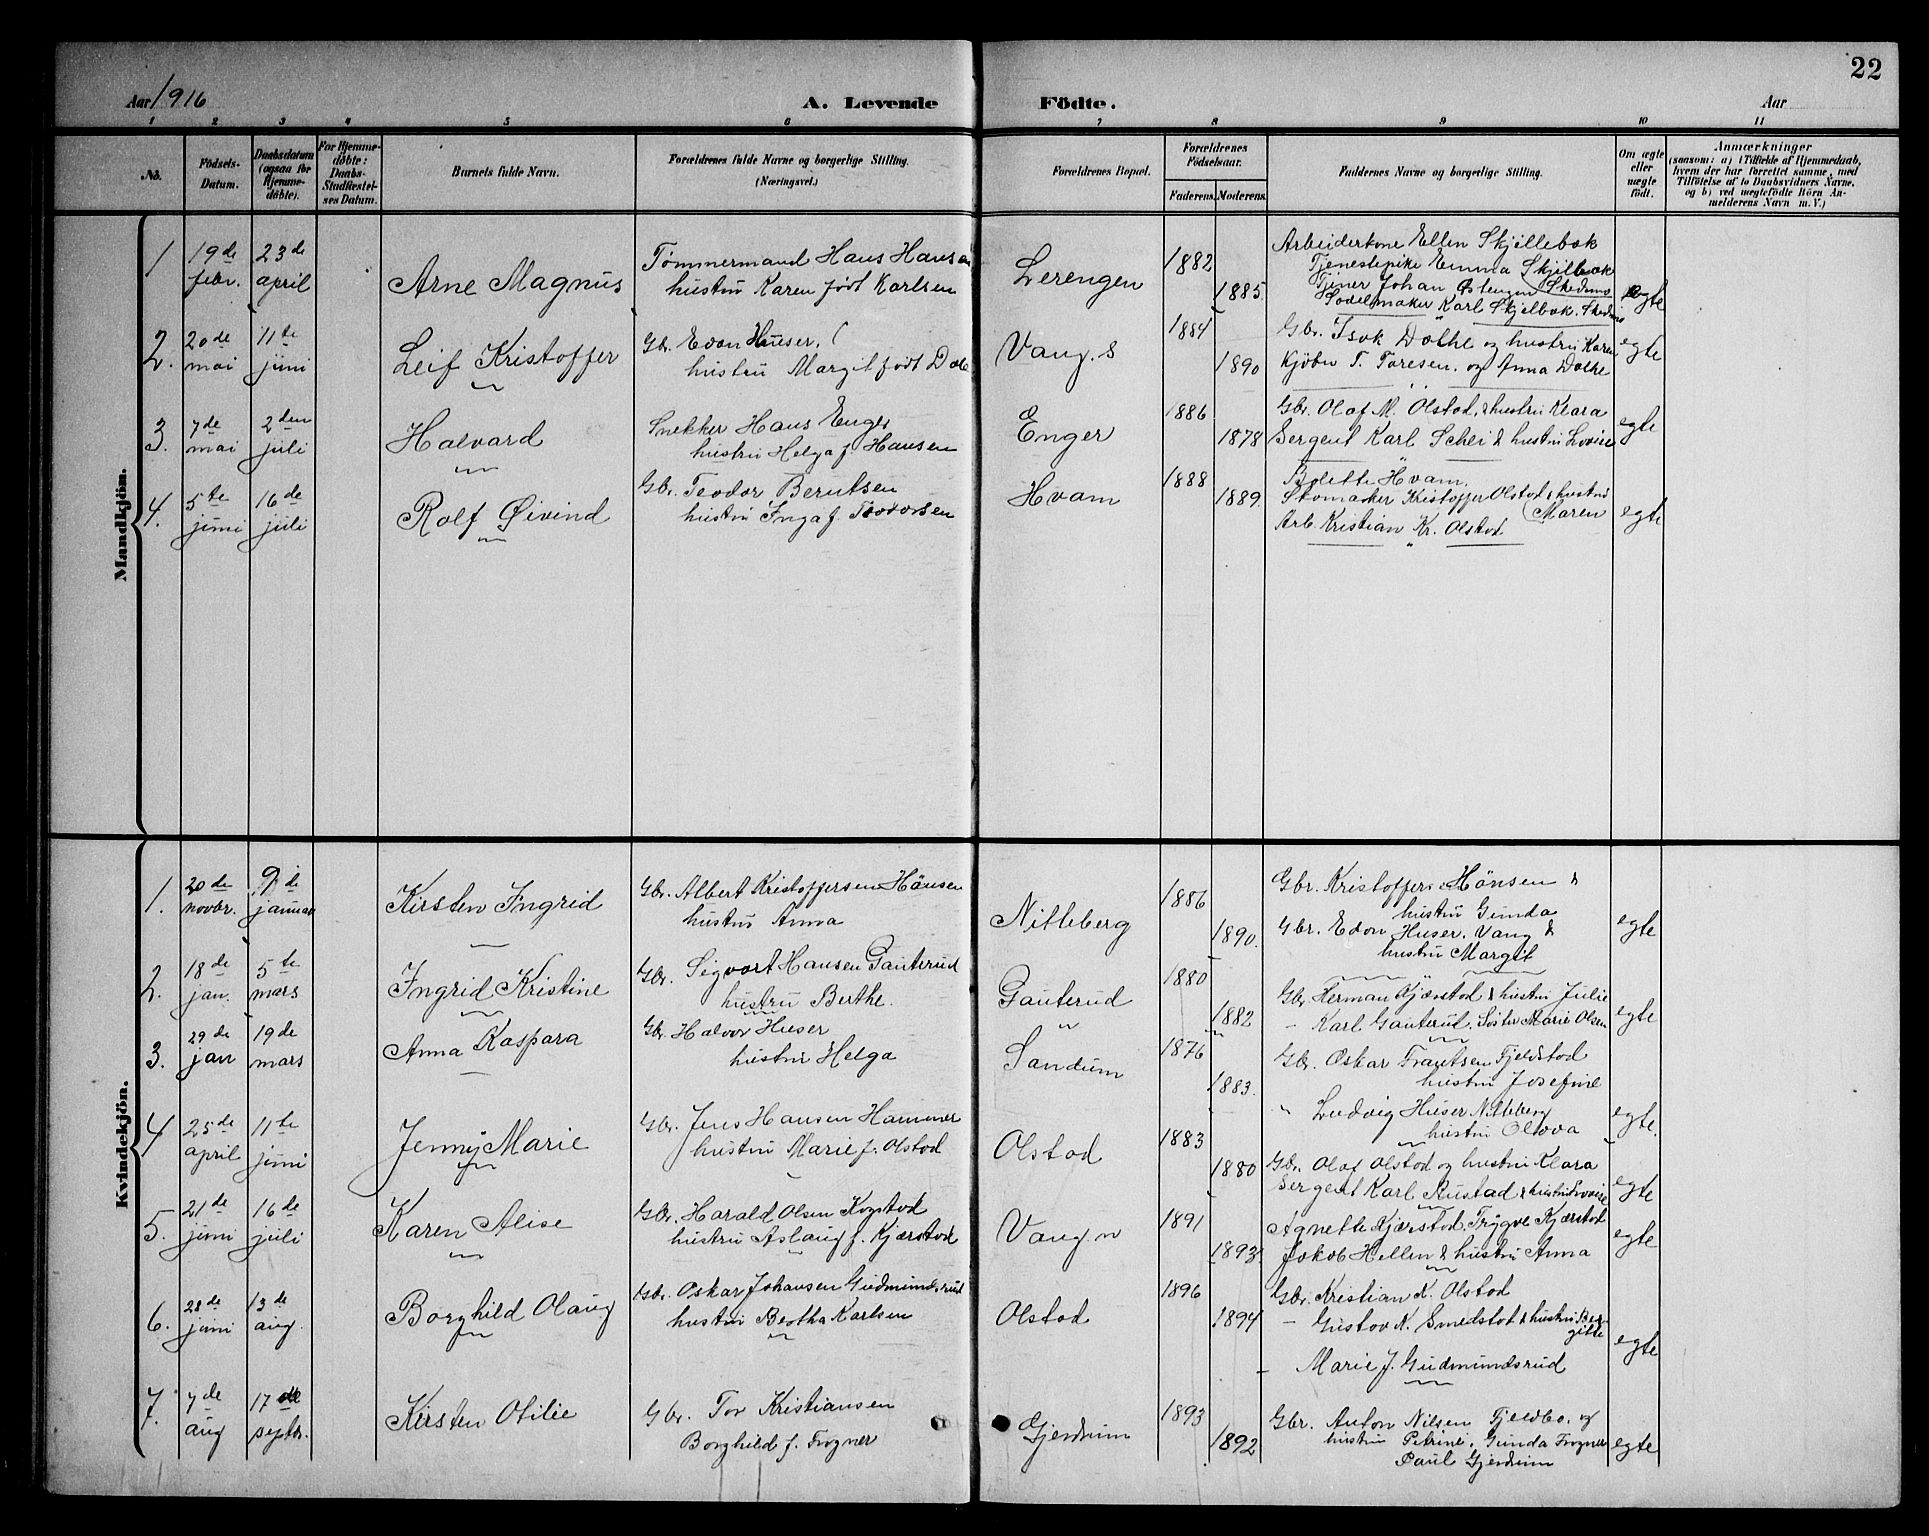 22
Aar 1916
A. Levende Födte.
Aar
1 2 3 4 5 6 7 8 9 10 11
No.
Födsels-Datum.
Daabsdatum (ogsaa for Hjemme-döbte).
For Hjemme-döbte: Daabs-Stadfæstel-ses Datum.
Barnets fulde Navn.
Forældrenes fulde Navne og borgerlige Stilling. (Næringsvei.)
Forældrenes Bopæl.
Forældrenes Födselsaar.
Faderens. Moderens.
Faddernes Navne og borgerlige Stilling.
Om ægte eller uægte födt.
Anmærkninger
(saasom: a) i Tilfælde af Hjemmedaab,
hvem der har forrettet samme, med
Tilföielse af to Daabsvidners Navne.
og b) ved uægtefödte Börn An-
melderens Navn m. V.)
Mandkjön.
1 19de febr. 23de april
Arne Magnus
Tømmermand Hans Hansen
hustru Karen født Karlsen
Lerengen
1882
1885
Arbeiderkone Ellen Skjillebæk
Tjenestepike Emma Skjilbæk
Tjener Johan Østengen Skedsmo
Sadelmaker Karl Skjelbæk. Skedsmo
egte
2. 20de mai 11te juni
Leif Kristoffer
Gb. Edon Huser.
hustru Margit født Døle
Vang. s
1884
1890
Gbr. Isak Døhle og hustru Karen
Kjøbm T. Toresen. og Anna Døhle
egte
3. 7de mai 2den juli
Halvard
Snekker Hans Enger
hustru Helga f. Hansen
Enger
1886
1878
Gbr. Olaf M. Ölstad, & hustru Klara
Sergent Karl Schei & hustru Lovise
egte
4. 5te juni 16de juli
Rolf Øivind
Gbr. Teodor Berntsen
hustru Inga f. Teodorsen
Hvam
1888
1889.
Bolette Hvam.
Skomaker Kristoffer Olstad & hustru
(Maren
Arb. Kristian Kr. Olstad
egte
Kvindekjön.
1. 20de novbr. 9de januar
Kirsten Ingrid
Gbr. Albert Kristoffersen Hönsen
hustru Anna
Nitteberg
1886
1890.
Gbr. Kristoffer Hönsen &
hustru Gunda
Gbr. Edon Huser. Vang &
hustru Margit
egte
2. 18de jan. 5te mars
Ingrid Kristine
Gbr. Sigvart Hansen Gauterud
hustru Berthe.
Gauterud
1880
1882
Gbr. Herman Kjærstad & hustru Julie
- Karl Gauterud. Søster Marie Olsen
egte
3. 29de jan 19de mars
Anna Kaspara
Gbr. Halvor Huser
hustru Helga
Sandum
1876
1883.
Gbr. Oskar Frantsen Fjeldstad
hustru Josefine
" Ludvig Huser Nitteberg
hustru Olava
egte.
4 25de april 11te juni
Jenny Marie
Gbr. Jens Hansen Hammer
hustru Marie f. Olstad
Olstad
1883
1880
Gbr. Olaf Olstad og hustru Klara
Sergent Karl Rustad & hustru Lovise
egte
5. 21de juni 16de juli
Karen Alise
Gbr. Harald Olsen Kogstad
hustru Aslaug f. Kjærstad
Vang. n
1891
1893
Agnethe Kjærstad. Trygve Kjærstad
Jakob Hellen & hustru Anna
egte
6. 28de juni 13de aug.
Borghild Olaug
Gbr. Oskar Johansen Gudmundsrud
hustru Bertha Karlsen
Olstad
1896
1894
Gbr. Kristian K. Olstad
- Gustav K. Smedstad & hustru Ber-
gitte
- Marie J. Gudmundsrud
egte
7. 7de aug 17de septbr.
Kirsten Otilie
Gbr. Tor Kristiansen
Borghild f. Frogner
Gjerdrum
1893
1892
Gbr. Anton Nilsen Fjeldbo, og
hustru Petrine. Gunda Frogner
Paul Gjerdrum
egte